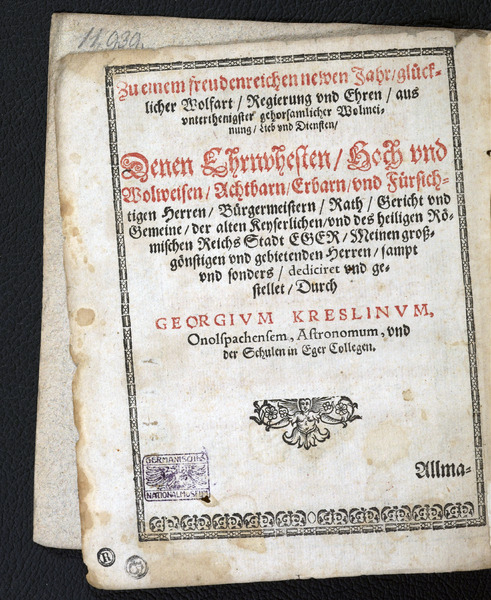 11,939
Zu einem freudenreichen newen Jahr/glück-
licher Wolfart / Regierung vnd Ehren / aus
vnterthenigster gehorsamlicher Wolmei-
nung/ Lieb vnd Diensten/
Denen Ehrnvhesten / Hoch vnd
Wolweisen / Achtbarn/Erbarn/vnd Fürsich-
tigen Herren / Bürgermeistern / Rath / Gericht vnd
Gemeine / der alten Keyserlichen/vnd des heiligen Rö-
mischen Reichs Stadt EGER / Meinen groß-
günstigen vnd gebietenden Herren / sampt
vnd sonders / dediciret vnd ge-
stellet / Durch
GEORGIVM KRESLINVM,
Onolspachensem, Astronomum, vnd
der Schulen in Eger Collegen.
GERMANISCHES
NATIONALMUSEUM
Allma-